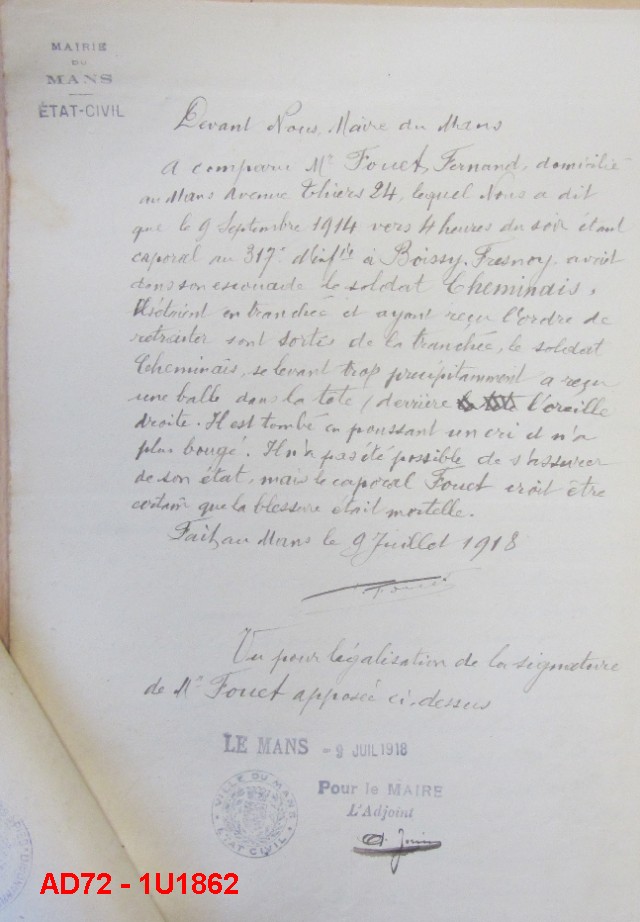 MAIRIE
DU
MANS
ÉTAT-CIVIL
Devant Nous, Maire du Mans
a comparu Mr Fouet, Fernand, domicilié
au Mans Avenue Thiers 24, lequel Nous a dit
que le 9 Septembre 1914 vers 4 heures du soir étant
caporal au 317e d'Inftie à Boissy-Fresnoy, avait
dans son escouade le soldat Cheminais,
Ils étaient en tranchée et ayant reçu l'ordre de
retraiter sont sortis de la tranchée, le soldat
Cheminais, se levant trop précipitamment a reçu
une balle dans la tête (derrière l'oreille
droite. Il est tombé en poussant un cri et n'a
plus bougé. Il n'a pas été possible de s'assurer
de son état, mais le caporal Fouet croit être
certain que la blessure était mortelle.
Fait au Mans le 9 Juillet 1918
Fouet
Vu pour légalisation de la signature
de Mr Fouet apposée ci-dessus
LE MANS - 9 JUIL 1918
VILLE DU MANS
ETAT CIVIL
Pour le MAIRE
L'Adjoint
AD72 - 1U1862